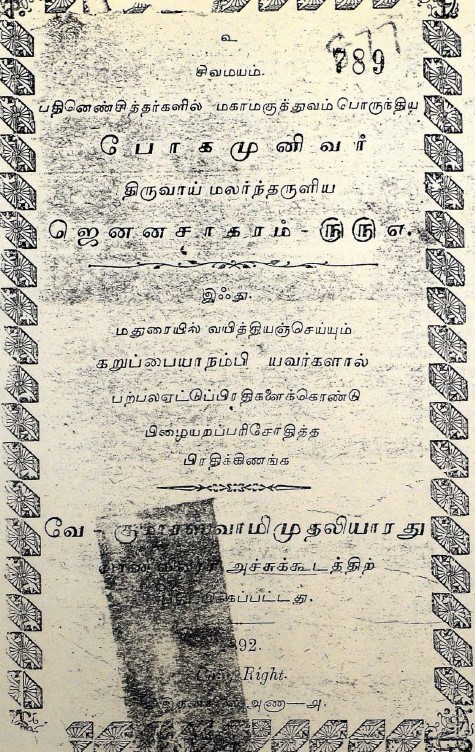 உ
877
789
சிவமயம்.
பதினெண்சித்தர்களில் மகாமகுத்துவம்பொருந்திய
போகமுனிவர்
திருவாய்மலர்ந்தருளிய
ஜெனனசாகரம் - ௫௫௭.
இஃது.
மதுரையில் வயித்தியஞ்செய்யும்
கறுப்பையாநம்பி யவர்களால்
பற்பலஏட்டுப்பிரதிகளைக்கொண்டு
பிழையறப்பரிசோதித்த
பிரதிக்கிணங்க
வே. குமாரஸ்வாமிமுதலியாரது
அச்சுக்கூடத்திற்
பதிப்பிக்கப்பட்டது.
892.
Copy Right.
அணா—அ.